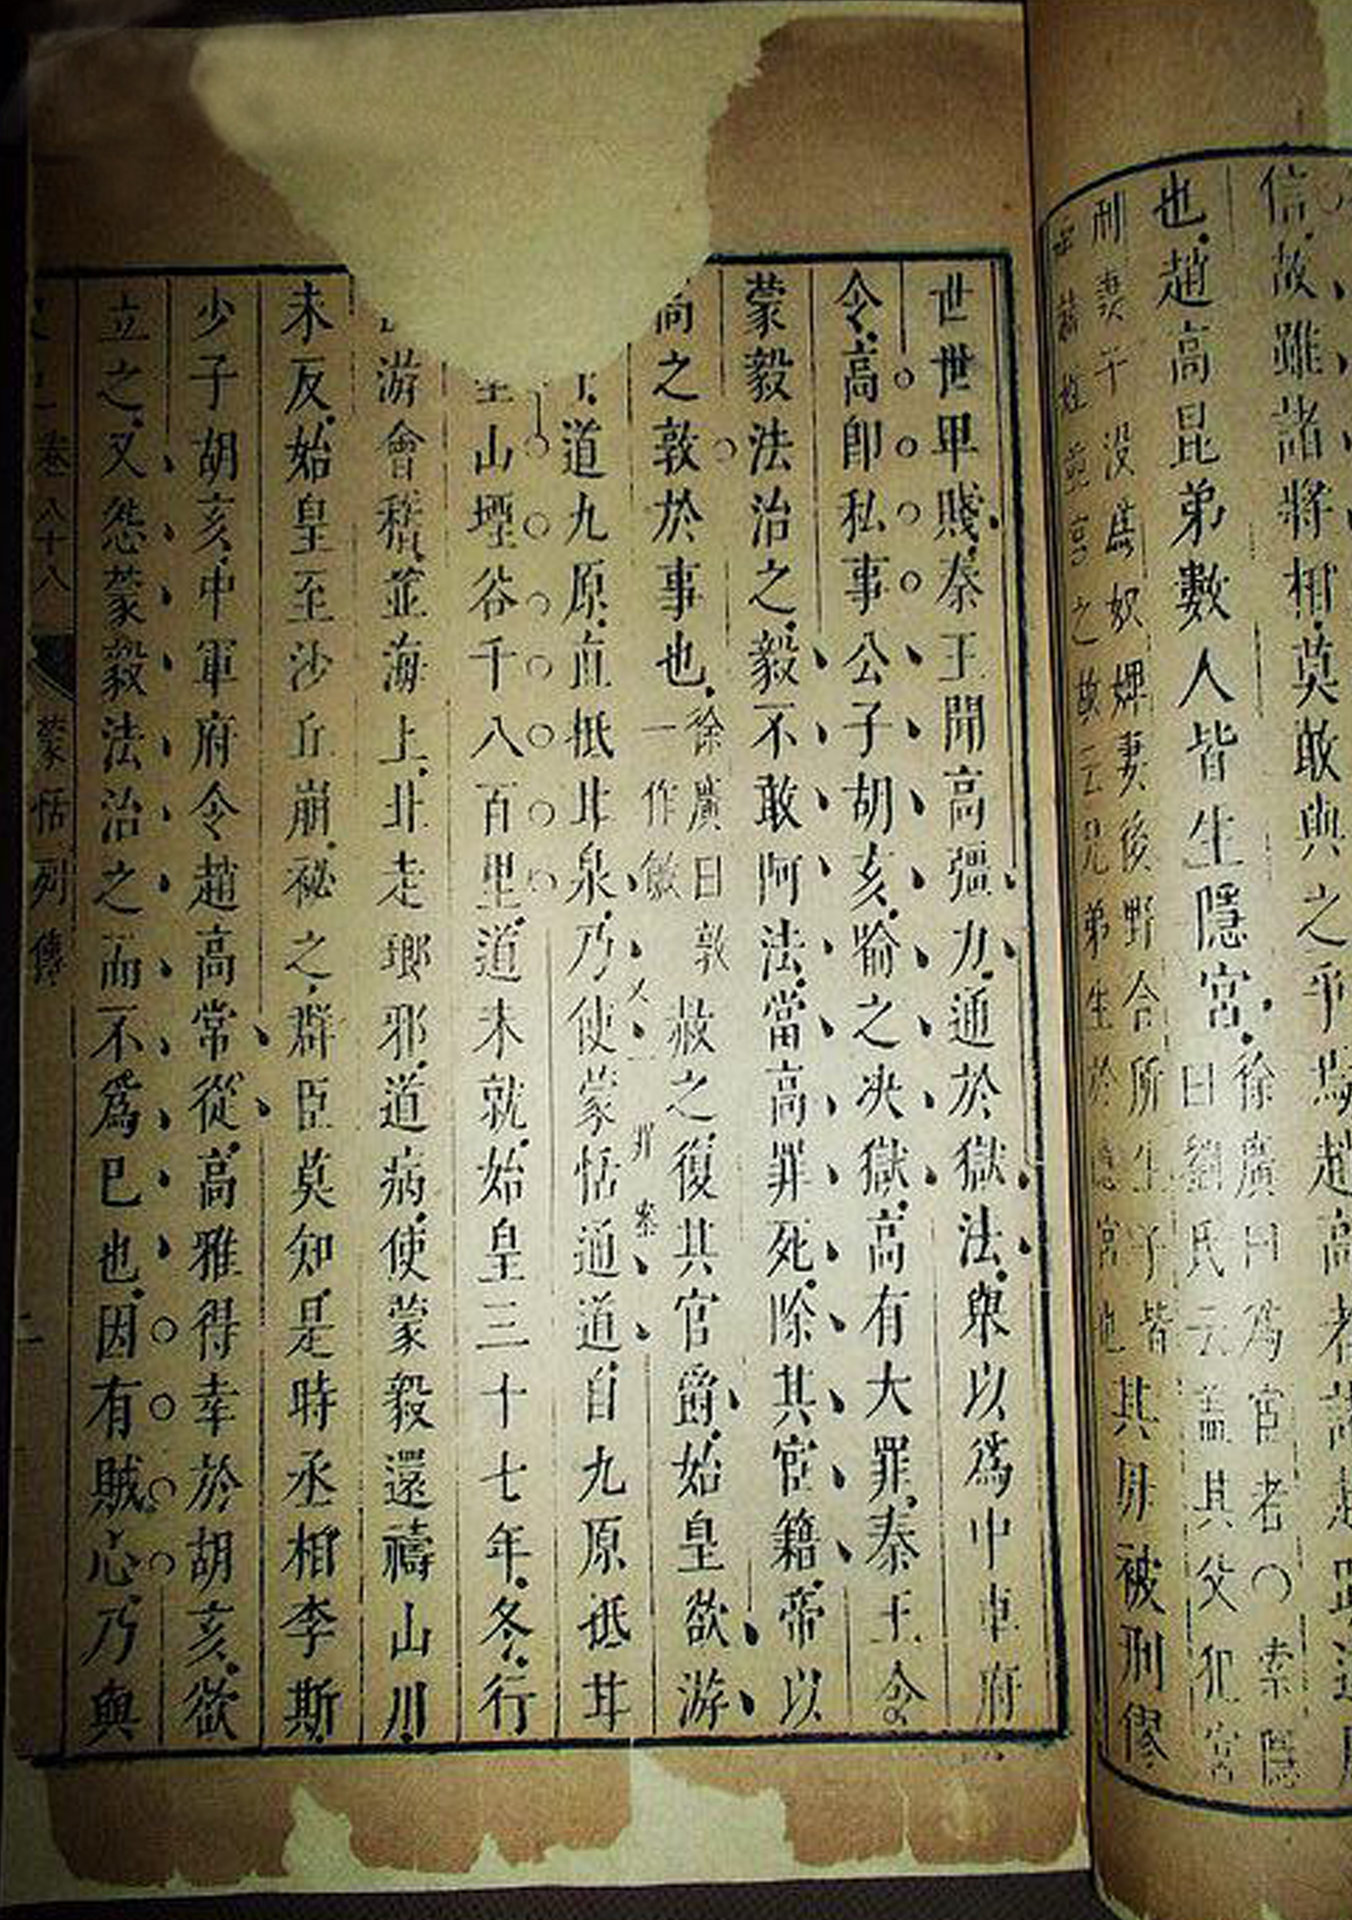 信故雖諸將相莫敢與之爭焉趙高者諸趙疏遠屬
也趙高昆弟數人皆生隱宮
徐廣曰為宦者○索隱
曰劉氏云蓋其父犯宮
刑妻子没為奴婢妻後野合所生子皆
承趙姓並宮之故云兄弟生於隱宮也
其母被刑僇
世世卑賤秦王聞高彊力通於獄法舉以爲中車府
令高卽私事公子胡亥喻之决獄高有大罪秦王令
蒙毅法治之毅不敢阿法當高罪死除其宦籍帝以
高之敦於事也
徐廣曰敦
一作敏
赦之復其官爵始皇欲游
下道九原直抵甘泉乃使蒙恬通道自九原抵甘
又一罪案
塹山堙谷千八百里道未就始皇三十七年冬行
游會稽並海上北走瑯邪道病使蒙毅還禱山川
未反始皇至沙丘崩祕之群臣莫知是時丞相李斯
少子胡亥中軍府令趙高常從高雅得幸於胡亥欲
立之又怨蒙毅法治之而不爲已也因有賊心乃與
卷八十八 蒙恬列傳 二